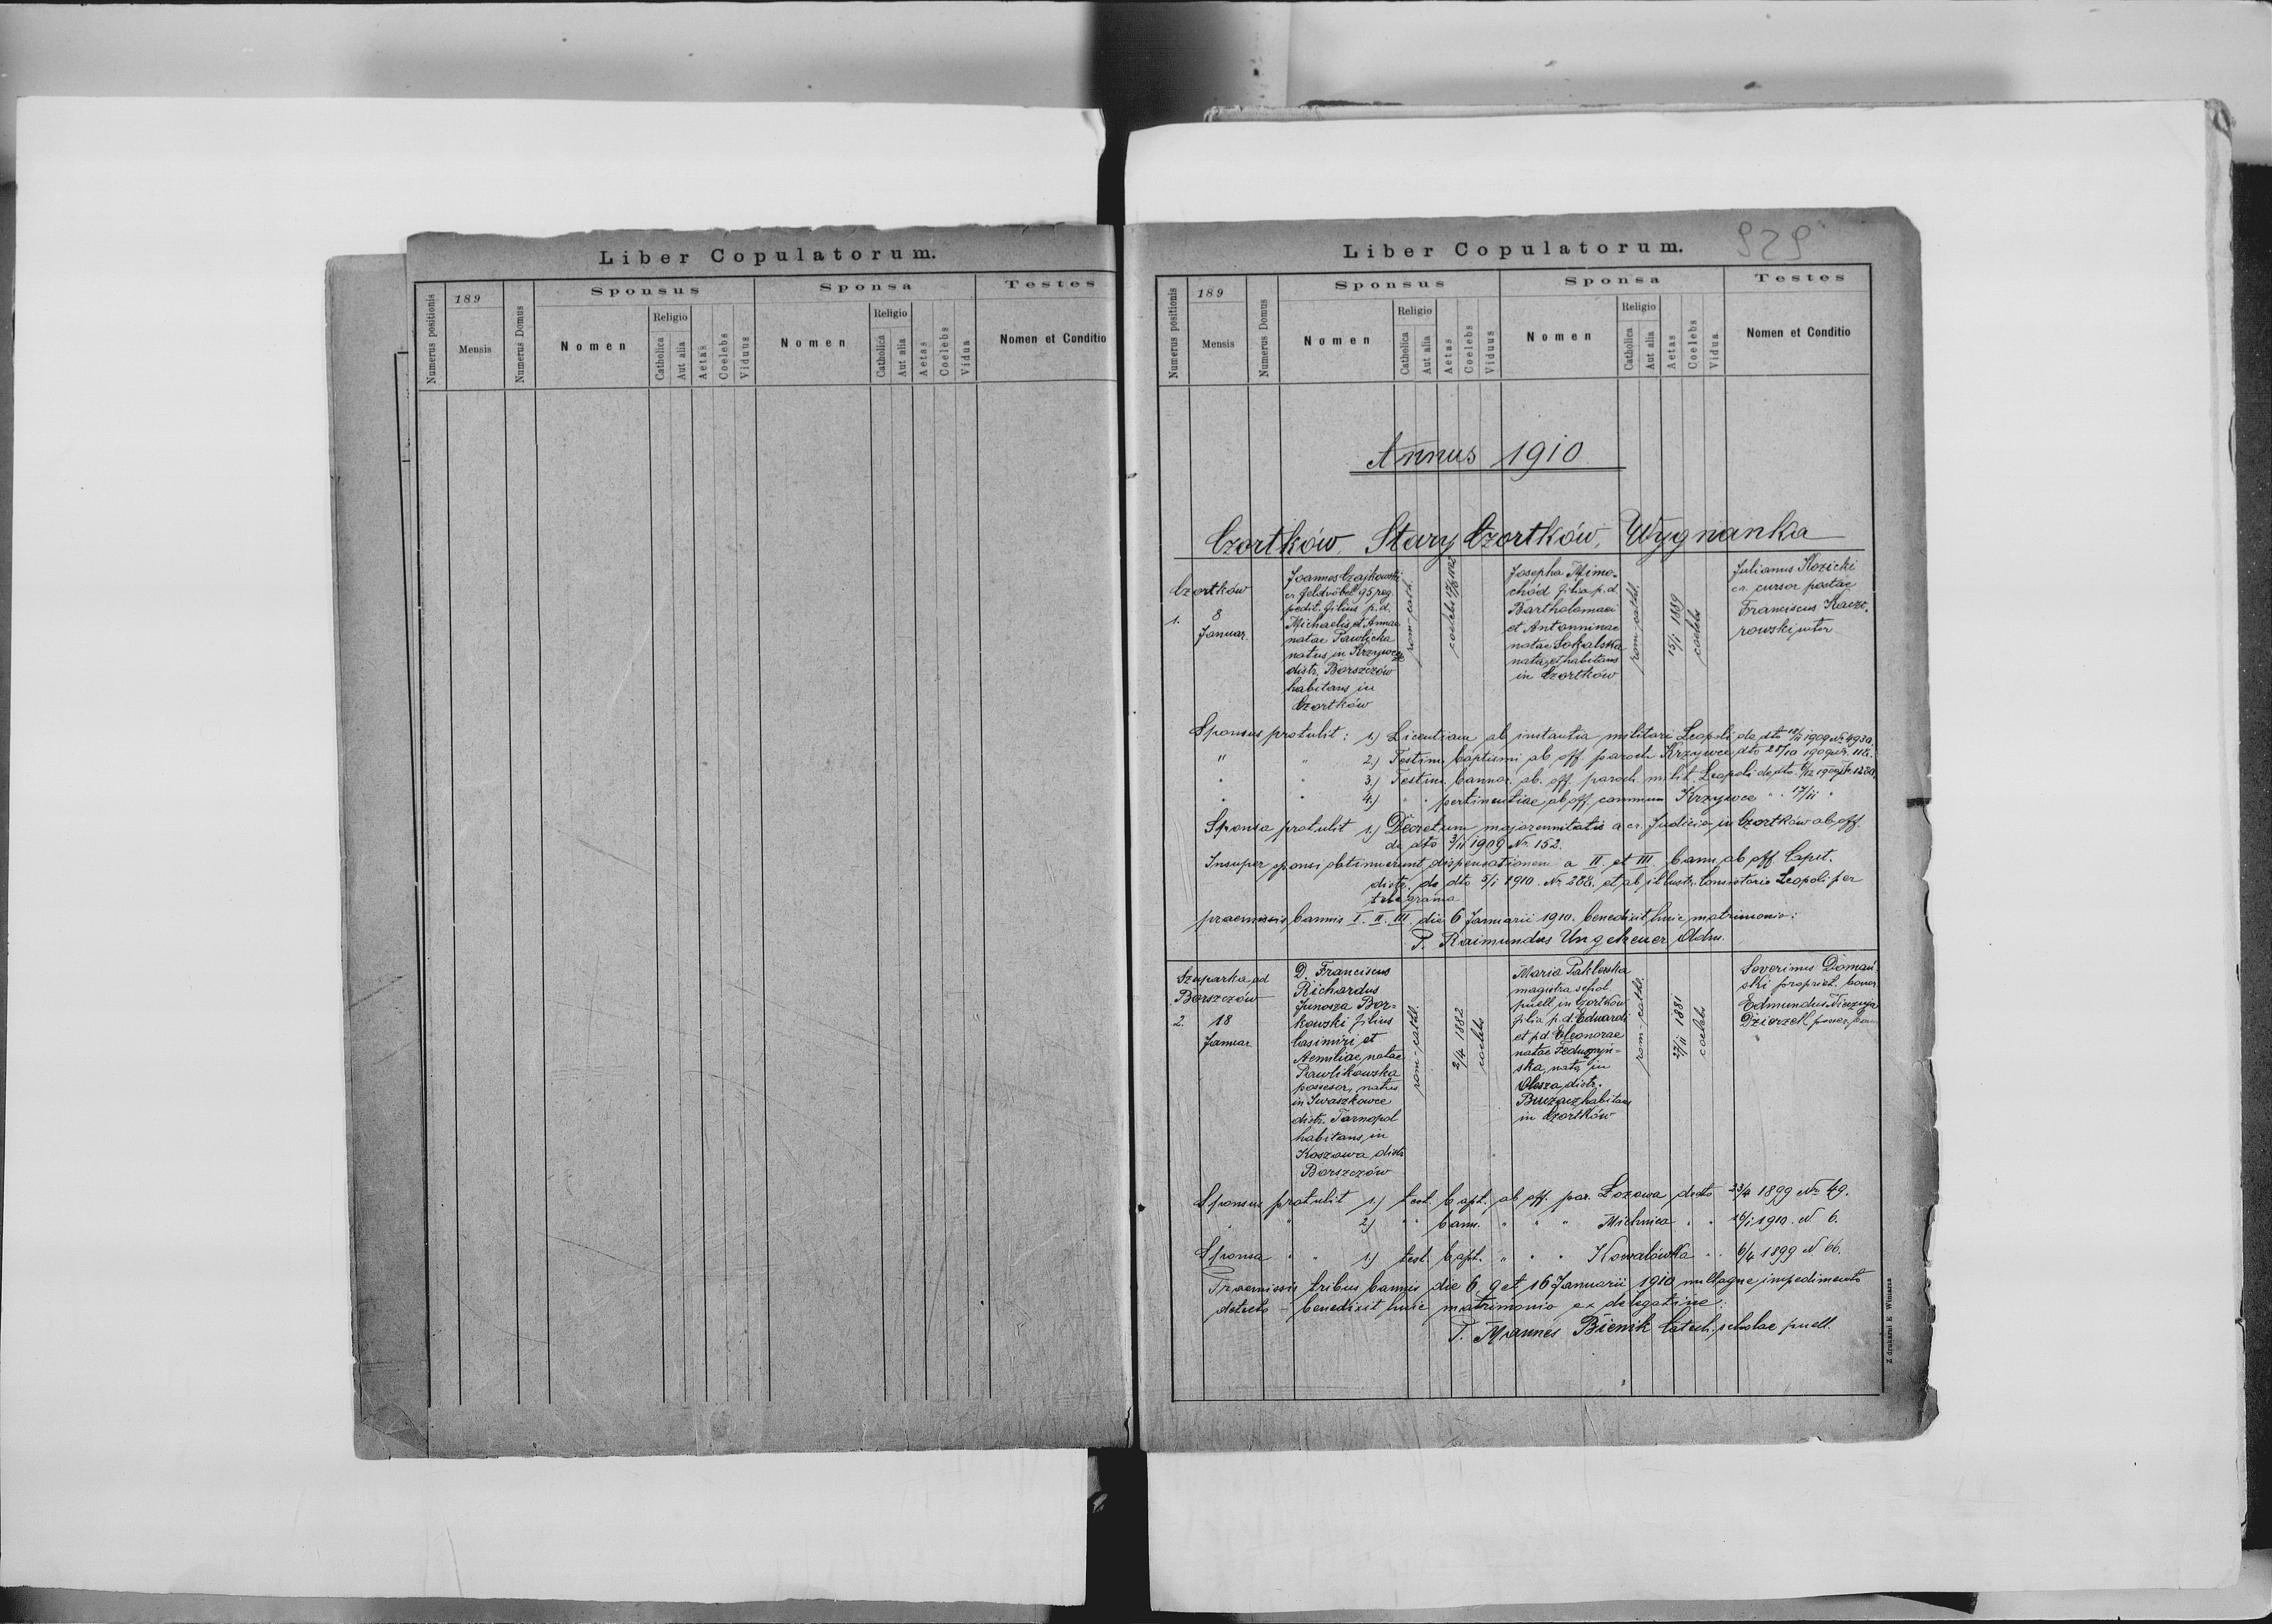 Liber Copulatorum.
Numerus positionis
189
Mensis
Numerus Domus
Sponsus
Nomen
Religio
Catholica
Aut alia
Aetas
Coelebs
Viduus
Sponsa
Nomen
Religio
Catholica
Aut alia
Aetas
Coelebs
Vidua
Testes
Nomen et Conditio
Liber Copulatorum.
929
Numerus positionis
189
Mensis
Numerus Domus
Sponsus
Nomen
Religio
Catholica
Aut alia
Aetas
Coelebs
Viduus
Sponsa
Nomen
Religio
Catholica
Aut alia
Aetas
Coelebs
Vidua
Testes
Nomen et Conditio
Annus 1910
Czortków, Stary Czortków, Wygnanka
Czortków
1. 8
Januar.
Joannes Czajkowski
cr. Feldvöbel 95 reg.
pedit. filius p.d.
Michaelis et Annae
natae Pawlicka
natus in Krzywcze
distr. Borszczów
habitans in
Czortków
rom-cath.
coelebs
Josepha Mimo-
chód filia p.d.
Bartholomaei
et Antonninae
natae Sokalska
nata et habitans
in Czortków
rom-cath.
15/I 1889
coelebs
Julianus Kozicki
cr. cursor postae
Franciscus Kacz-
rowski sutor
Sponsus protulit: 1.) Licentiam ab instantia militari Leopoli de dto 1909 Nr 4930.
" " 2.) Testim. baptismi ab off. paroch. Krzywcze dto 1909
" " 3.) Testim. bannor. ab. off. paroch. milit. Leopoli de dto. 1909
" " 4.) " " pertinentiae ab off. commun Krzywcze " " 17/11 "
Sponsa protulit 1.) Decretum majorennitatis a cr. Judicio in Czortków ab off.
de dto 3/11 1909 Nr. 152.
Insuper sponsi obtinuerunt dispensationem a II et III bann. ab off. Capit.
distr. de dto 5/I 1910. Nr 288. et ab illustr. Consistorio Leopoli per
telegrama
praemissis bannis I. II. III. die 6 Januarii 1910. benedixit huic matrimonio:
P. Raimundus Ungeheuer Adm.
Szuparka ad
Borszczów
2. 18
Januar
D. Franciscus
Richardus
Junosza Bor-
kowski filius
Casimiri et
Aemiliae natae
Pawlikowska
possesor, natus
in Iwaszkowce
distr. Tarnopol
habitans in
Koszowa distr.
Borszczów
rom-cath.
2/4 1882
coelebs
Maria Paklerska
magistra schol.
puell. in Czortków
filia p.d. Edwardi
et p.d. Eleonorae
natae
ska, nata in
Olesza distr.
Buczacz habitans
in Czortków
rom-cath.
27/11 1881
coelebs
Severinus Domań-
ski propriet. bonor.
Edmundus
Dzierzek posses. bon.
Sponsus protulit 1.) test. bapt. ab off. par. Łozowa de dto 23/4 1899 Nr 49.
" " 2.) " " bann. " " " " " 16/I 1910. N 6.
Sponsa " " 1.) test. bapt. " " " Kowalówka " " 6/4 1899 N 66.
Praemissis tribus bannis die 6, 9 et 16 Januarii 1910 nulloque impedimento
detecto - benedixit huic matrimonio ex delegatione:
P. Mannes Bienik Catech. scholae puell.
Z drukarni E Winiarza